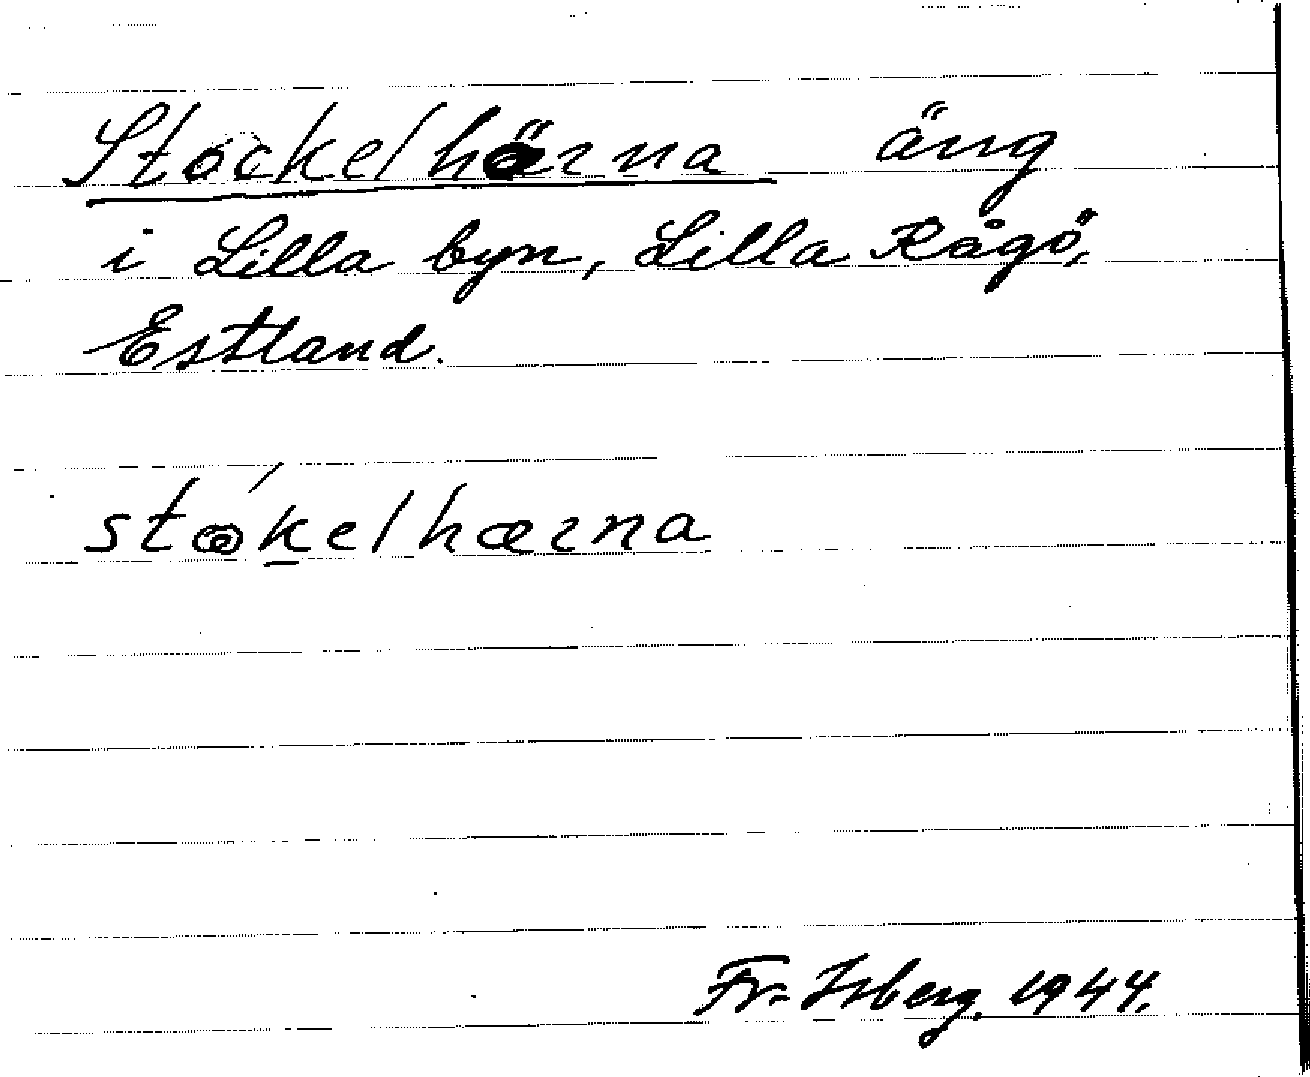 Stockelhärna äng
i Lilla byn, Lilla Rågö,
Estland.
støḱelhærna
Fr. Isberg. 1944.